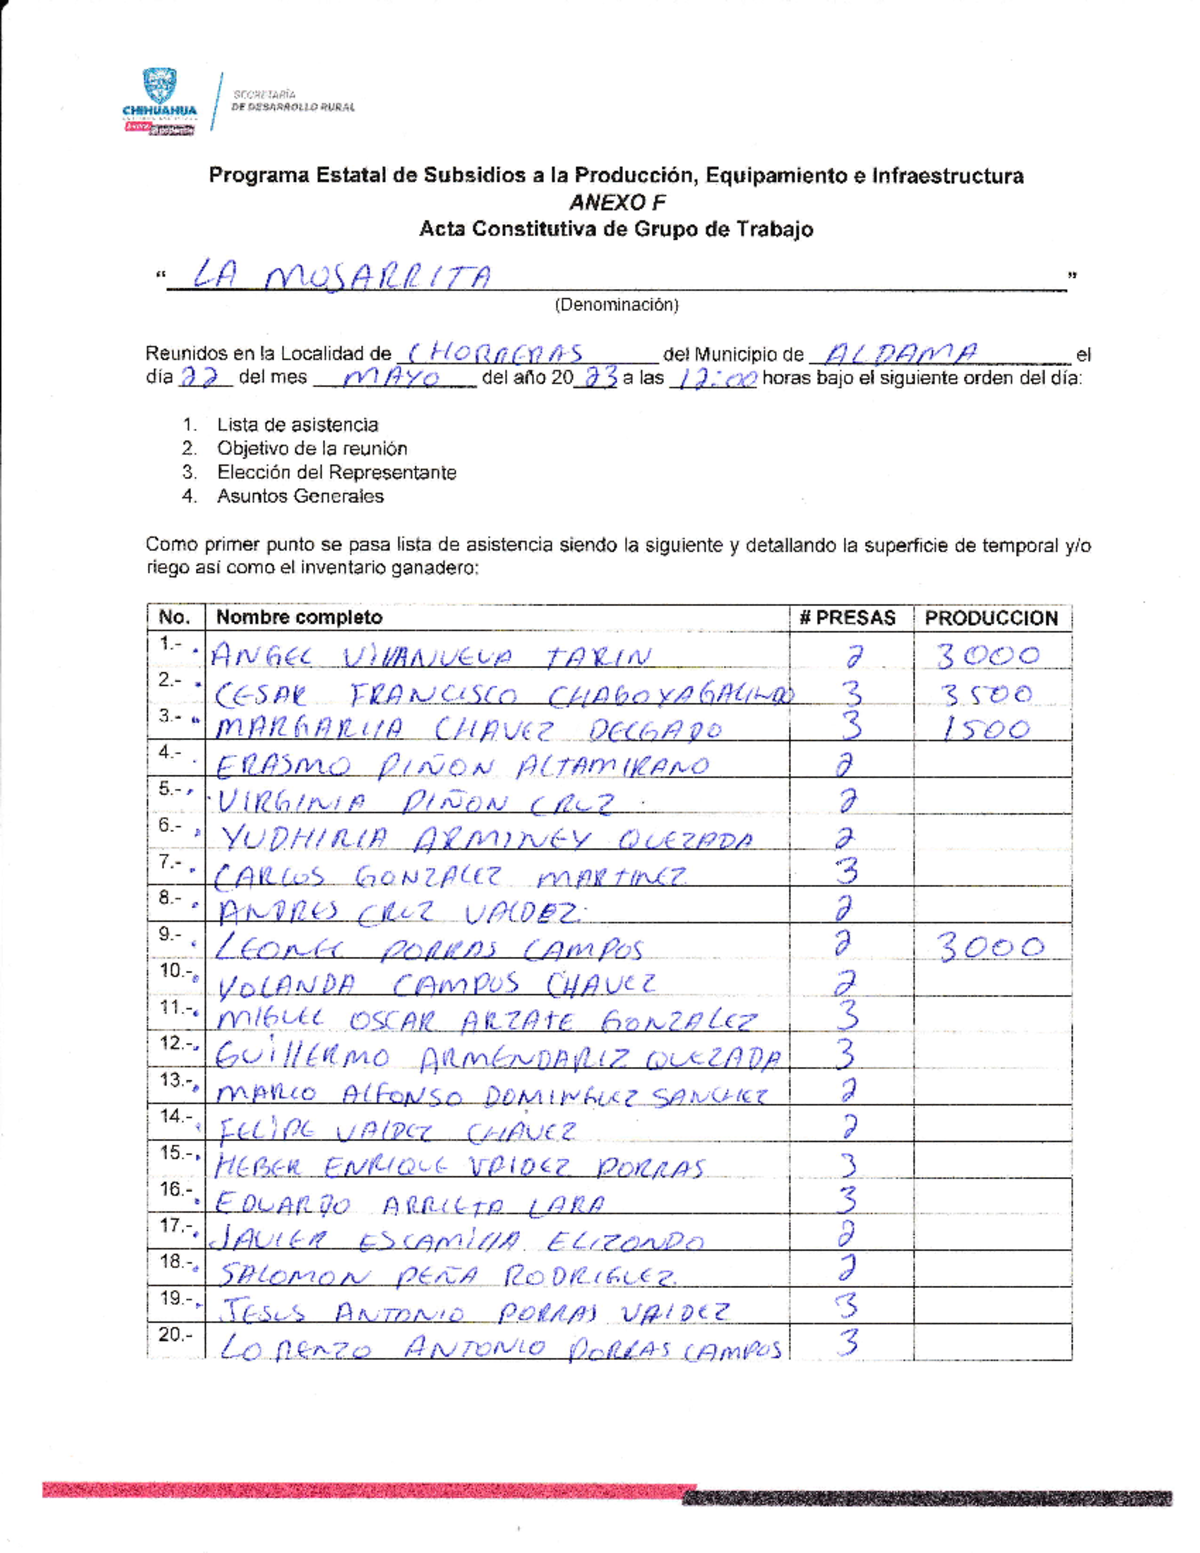 CHIHUAHUA
SECRETARÍA
DE DESARROLLO RURAL
Programa Estatal de Subsidios a la Producción, Equipamiento e Infraestructura
ANEXO F
Acta Constitutiva de Grupo de Trabajo
“ LA MOSARRITA ”
(Denominación)
Reunidos en la Localidad de CHORRERAS del Municipio de ALDAMA el
día 22 del mes MAYO del año 20 23 a las 12:00 horas bajo el siguiente orden del día:
1. Lista de asistencia
2. Objetivo de la reunión
3. Elección del Representante
4. Asuntos Generales
Como primer punto se pasa lista de asistencia siendo la siguiente y detallando la superficie de temporal y/o
riego así como el inventario ganadero:
No. Nombre completo # PRESAS PRODUCCION
1.- ANGEL VILLANUEVA TARIN 2 3000
2.- CESAR FRANCISCO CHAGOYA GALINDO 3 3500
3.- MARGARITA CHAVEZ DELGADO 3 1500
4.- ERASMO PIÑON ALTAMIRANO 2
5.- VIRGINIA PIÑON CRUZ 2
6.- YUDHIRIA ARMINEY QUEZADA 2
7.- CARLOS GONZALEZ MARTINEZ 3
8.- ANDRES CRUZ VALDEZ 2
9.- LEONEL PORRAS CAMPOS 2 3000
10.- YOLANDA CAMPOS CHAVEZ 2
11.- MIGUEL OSCAR ARZATE GONZALEZ 3
12.- GUILLERMO ARMENDARIZ QUEZADA 3
13.- MARCO ALFONSO DOMINGUEZ SANCHEZ 2
14.- FELIPE VALDEZ CHAVEZ 2
15.- HEBER ENRIQUE VALDEZ PORRAS 3
16.- EDUARDO ARRIETA LARA 3
17.- JAVIER ESCAMILLA ELIZONDO 2
18.- SALOMON PEÑA RODRIGUEZ 2
19.- JESUS ANTONIO PORRAS VALDEZ 3
20.- LORENZO ANTONIO PORRAS CAMPOS 3